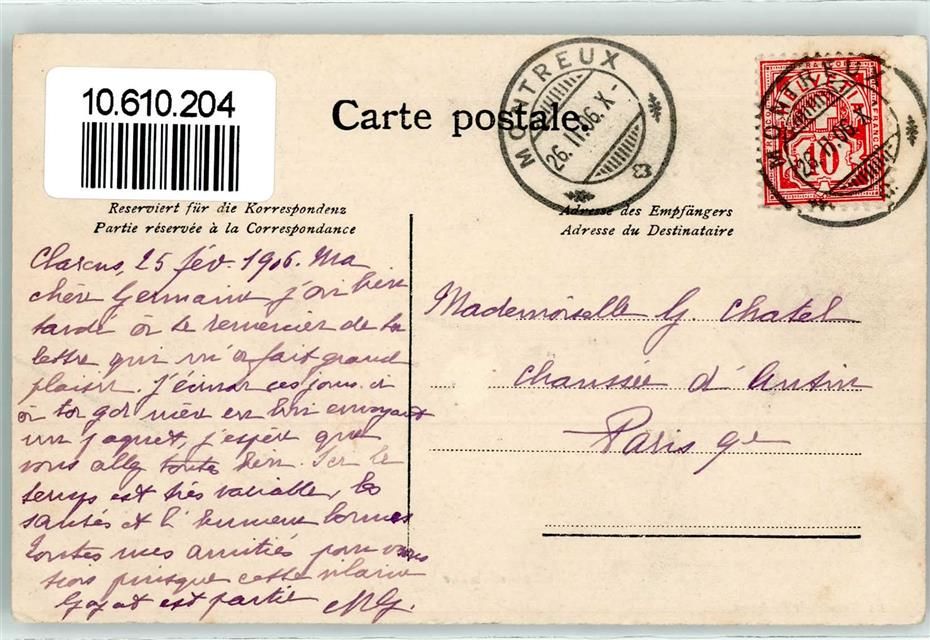 10.610.204
Carte postale.
MONTREUX
26.II.06.X-
MONTREUX
26.II.06.X
FRANCO
10
Reserviert für die Korrespondenz
Partie réservée à la Correspondance
Adresse des Empfängers
Adresse du Destinataire
Clarens, 25 fév. 1906. Ma
chère Germaine j'ai bien
tardé à te remercier de ta
lettre qui m'a fait grand
plaisir. J'écrirai ces jours ci
à ta gd mère en lui envoyant
un paquet, j'espère que
vous allez toute bien. Ici le
temps est très variable, les
santés et l'humeur bonnes
toutes mes amitiés pour vous
trois puisque cette vilaine
est partie MG.
Mademoiselle G. Chatel
Chaussée d'Antin
Paris 9e